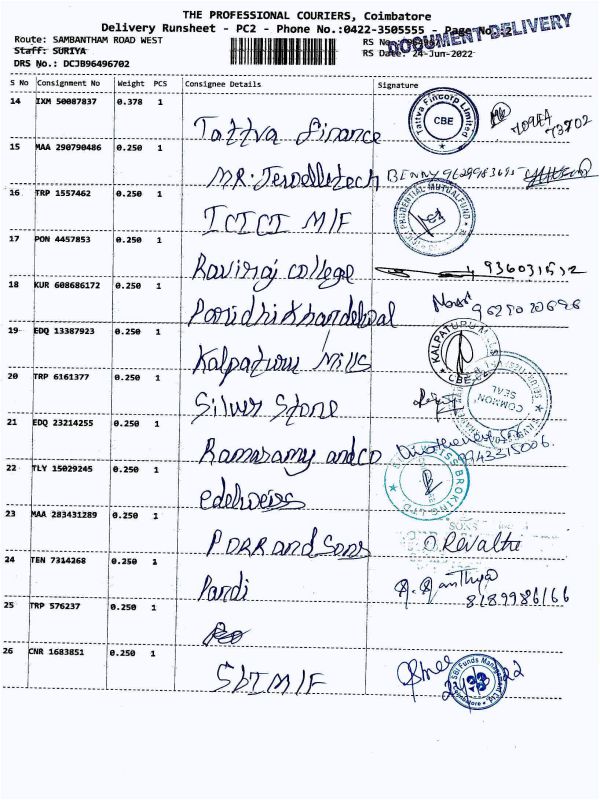 THE PROFESSIONAL COURIERS, Coimbatore
Delivery Runsheet - PC2 - Phone No.:0422-3505555 - Page No.
DOCUMENT DELIVERY
Route: SAMBANTHAM ROAD WEST
RS No.
Staff: SURIYA
RS Date: 24-Jun-2022
DRS No.: DCJB96496702
S No Consignment No Weight PCS Consignee Details Signature
14 IXM 50087837 0.378 1
Tattva Finance
Tattva Fincorp Limited
CBE
73702
15 MAA 290790486 0.250 1
MR. Jewelletech BENNY
16 TRP 1557462 0.250 1
ICICI M/F
PRUDENTIAL MUTUAL FUND
17 PON 4457853 0.250 1
Raviraj college
18 KUR 608686172 0.250 1
Paridhi Khandelwal
19 EDQ 13387923 0.250 1
Kalpaturu Mills
KALPATURU MILLS
CBE
20 TRP 6161377 0.250 1
Silver Stone
COMMON SEAL
21 EDQ 23214255 0.250 1
Ramasamy and co
9943315006.
22 TLY 15029245 0.250 1
edelweiss
BROKING LTD
23 MAA 283431289 0.250 1
P DRR and Sons
SONS
O Revathi
24 TEN 7314268 0.250 1
Pandi
8189986166
25 TRP 576237 0.250 1
26 CNR 1683851 0.250 1
SbI M/F
SBI Funds Management